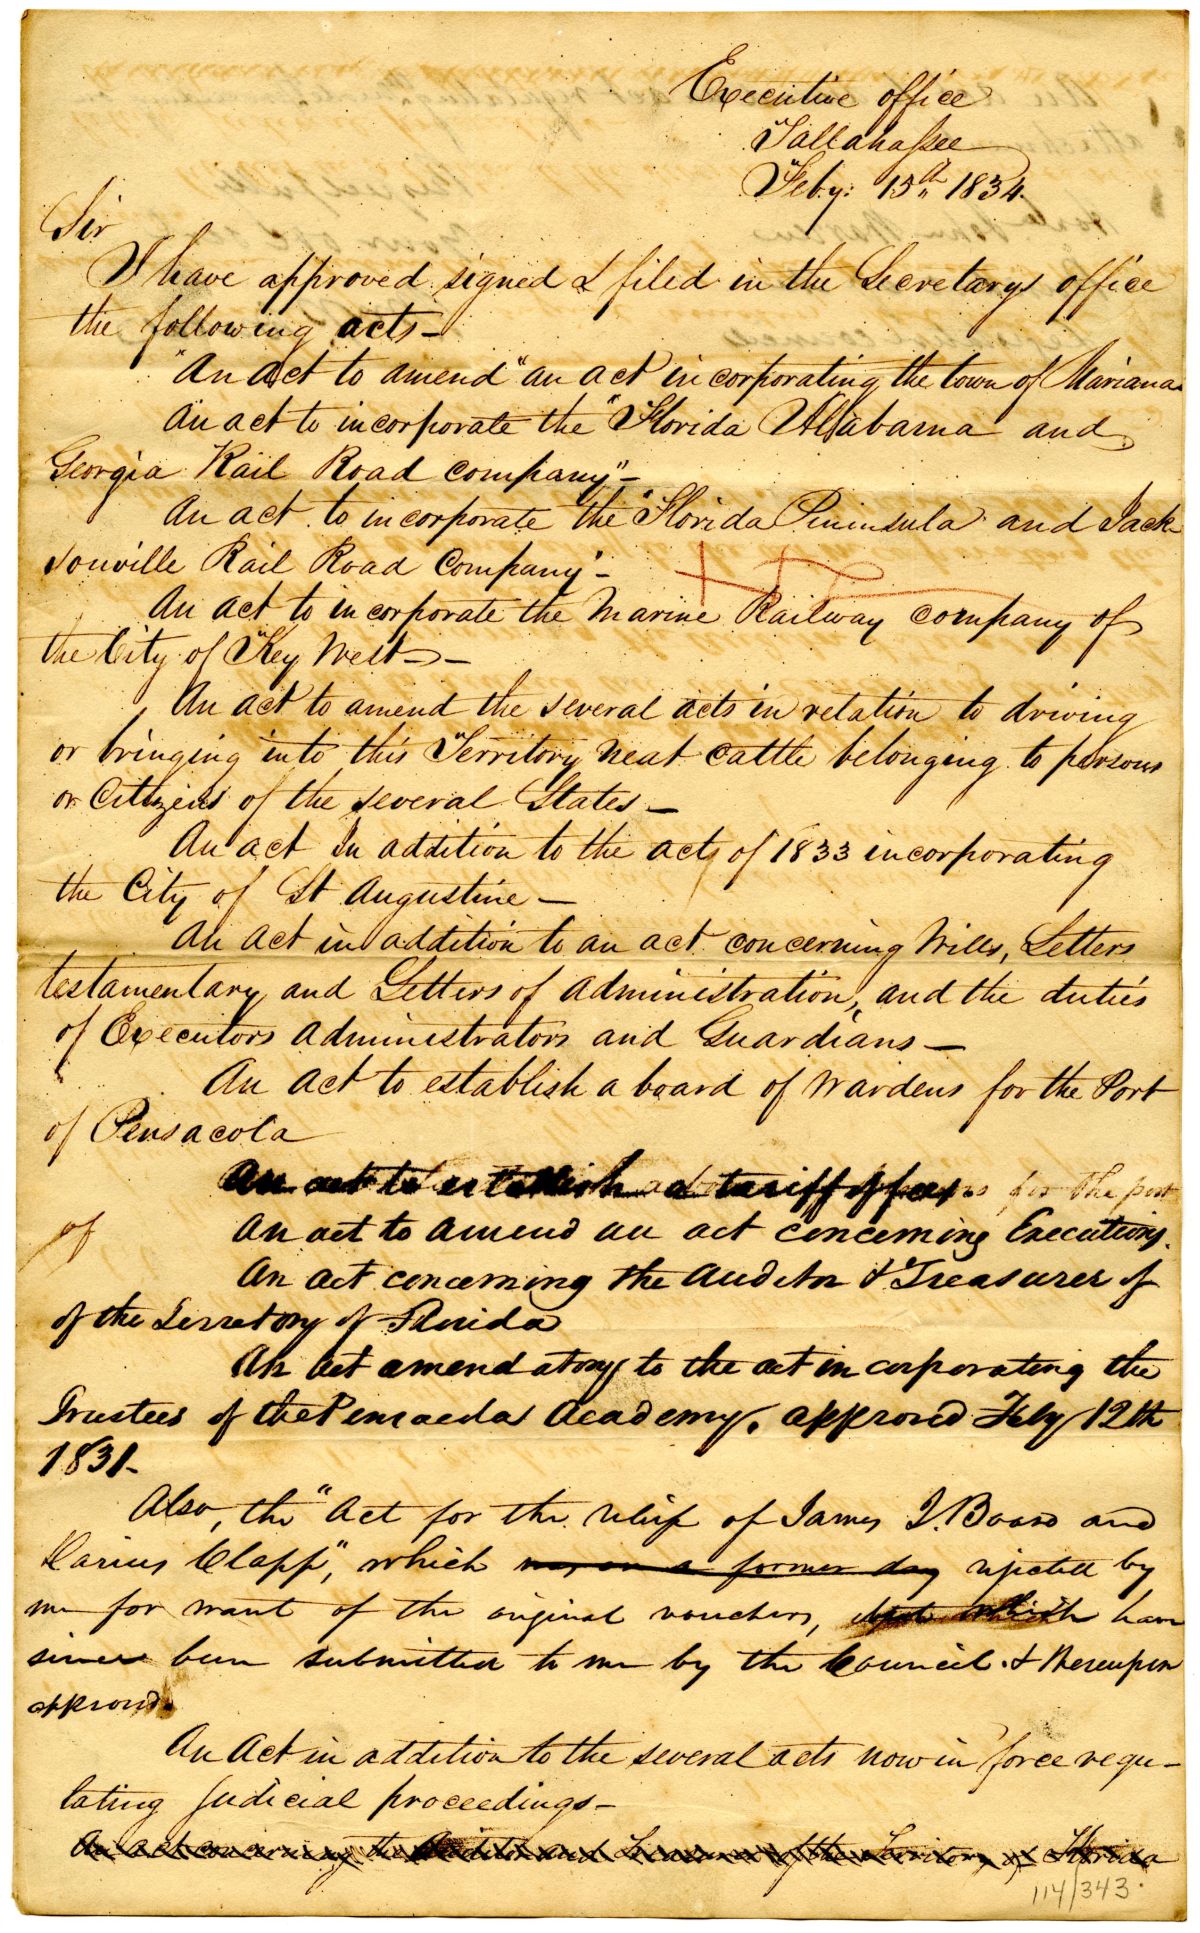 Executive office
Tallahassee
Feby: 15th 1834.
Sir
I have approved signed & filed in the Secretarys office
the following acts—
"An Act to amend "an act incorporating the town of Mariana
An act to incorporate the "Florida Alabama and
Georgia Rail Road Company"—
An act to incorporate the "Florida Peninsula and Jack-
sonville Rail Road Company"—
An act to incorporate the Marine Railway Company of
the City of Key West—
An act to amend the several acts in relation to driving
or bringing into this Territory neat cattle belonging to persons
or Citizens of the several States—
An act In addition to the acts of 1833 incorporating
the City of St Augustine—
An act in addition to an act concerning Wills, Letters
testamentary and Letters of administration, and the duties
of Executors administrators and Guardians—
An act to establish a board of Wardens for the Port
of Pensacola
An act to establish a tariff of fees for the port
of
An act to amend an act concerning Executions.
An act concerning the Auditor & Treasurer of
of the Territory of Florida
An act amendatory to the act incorporating the
Trustees of the Pensacola Academy, approved Feby 12th
1831—
Also, the "Act for the relief of James J. Board and
Darius Clapp", which was on a former day rejected by
me for want of the original vouchers, but which have
since been submitted to me by the Council & thereupon
approved.
An Act in addition to the several acts now in force regu-
lating judicial proceedings—
An act concerning the Auditor and Treasurer of the Territory of Florida
114/343.